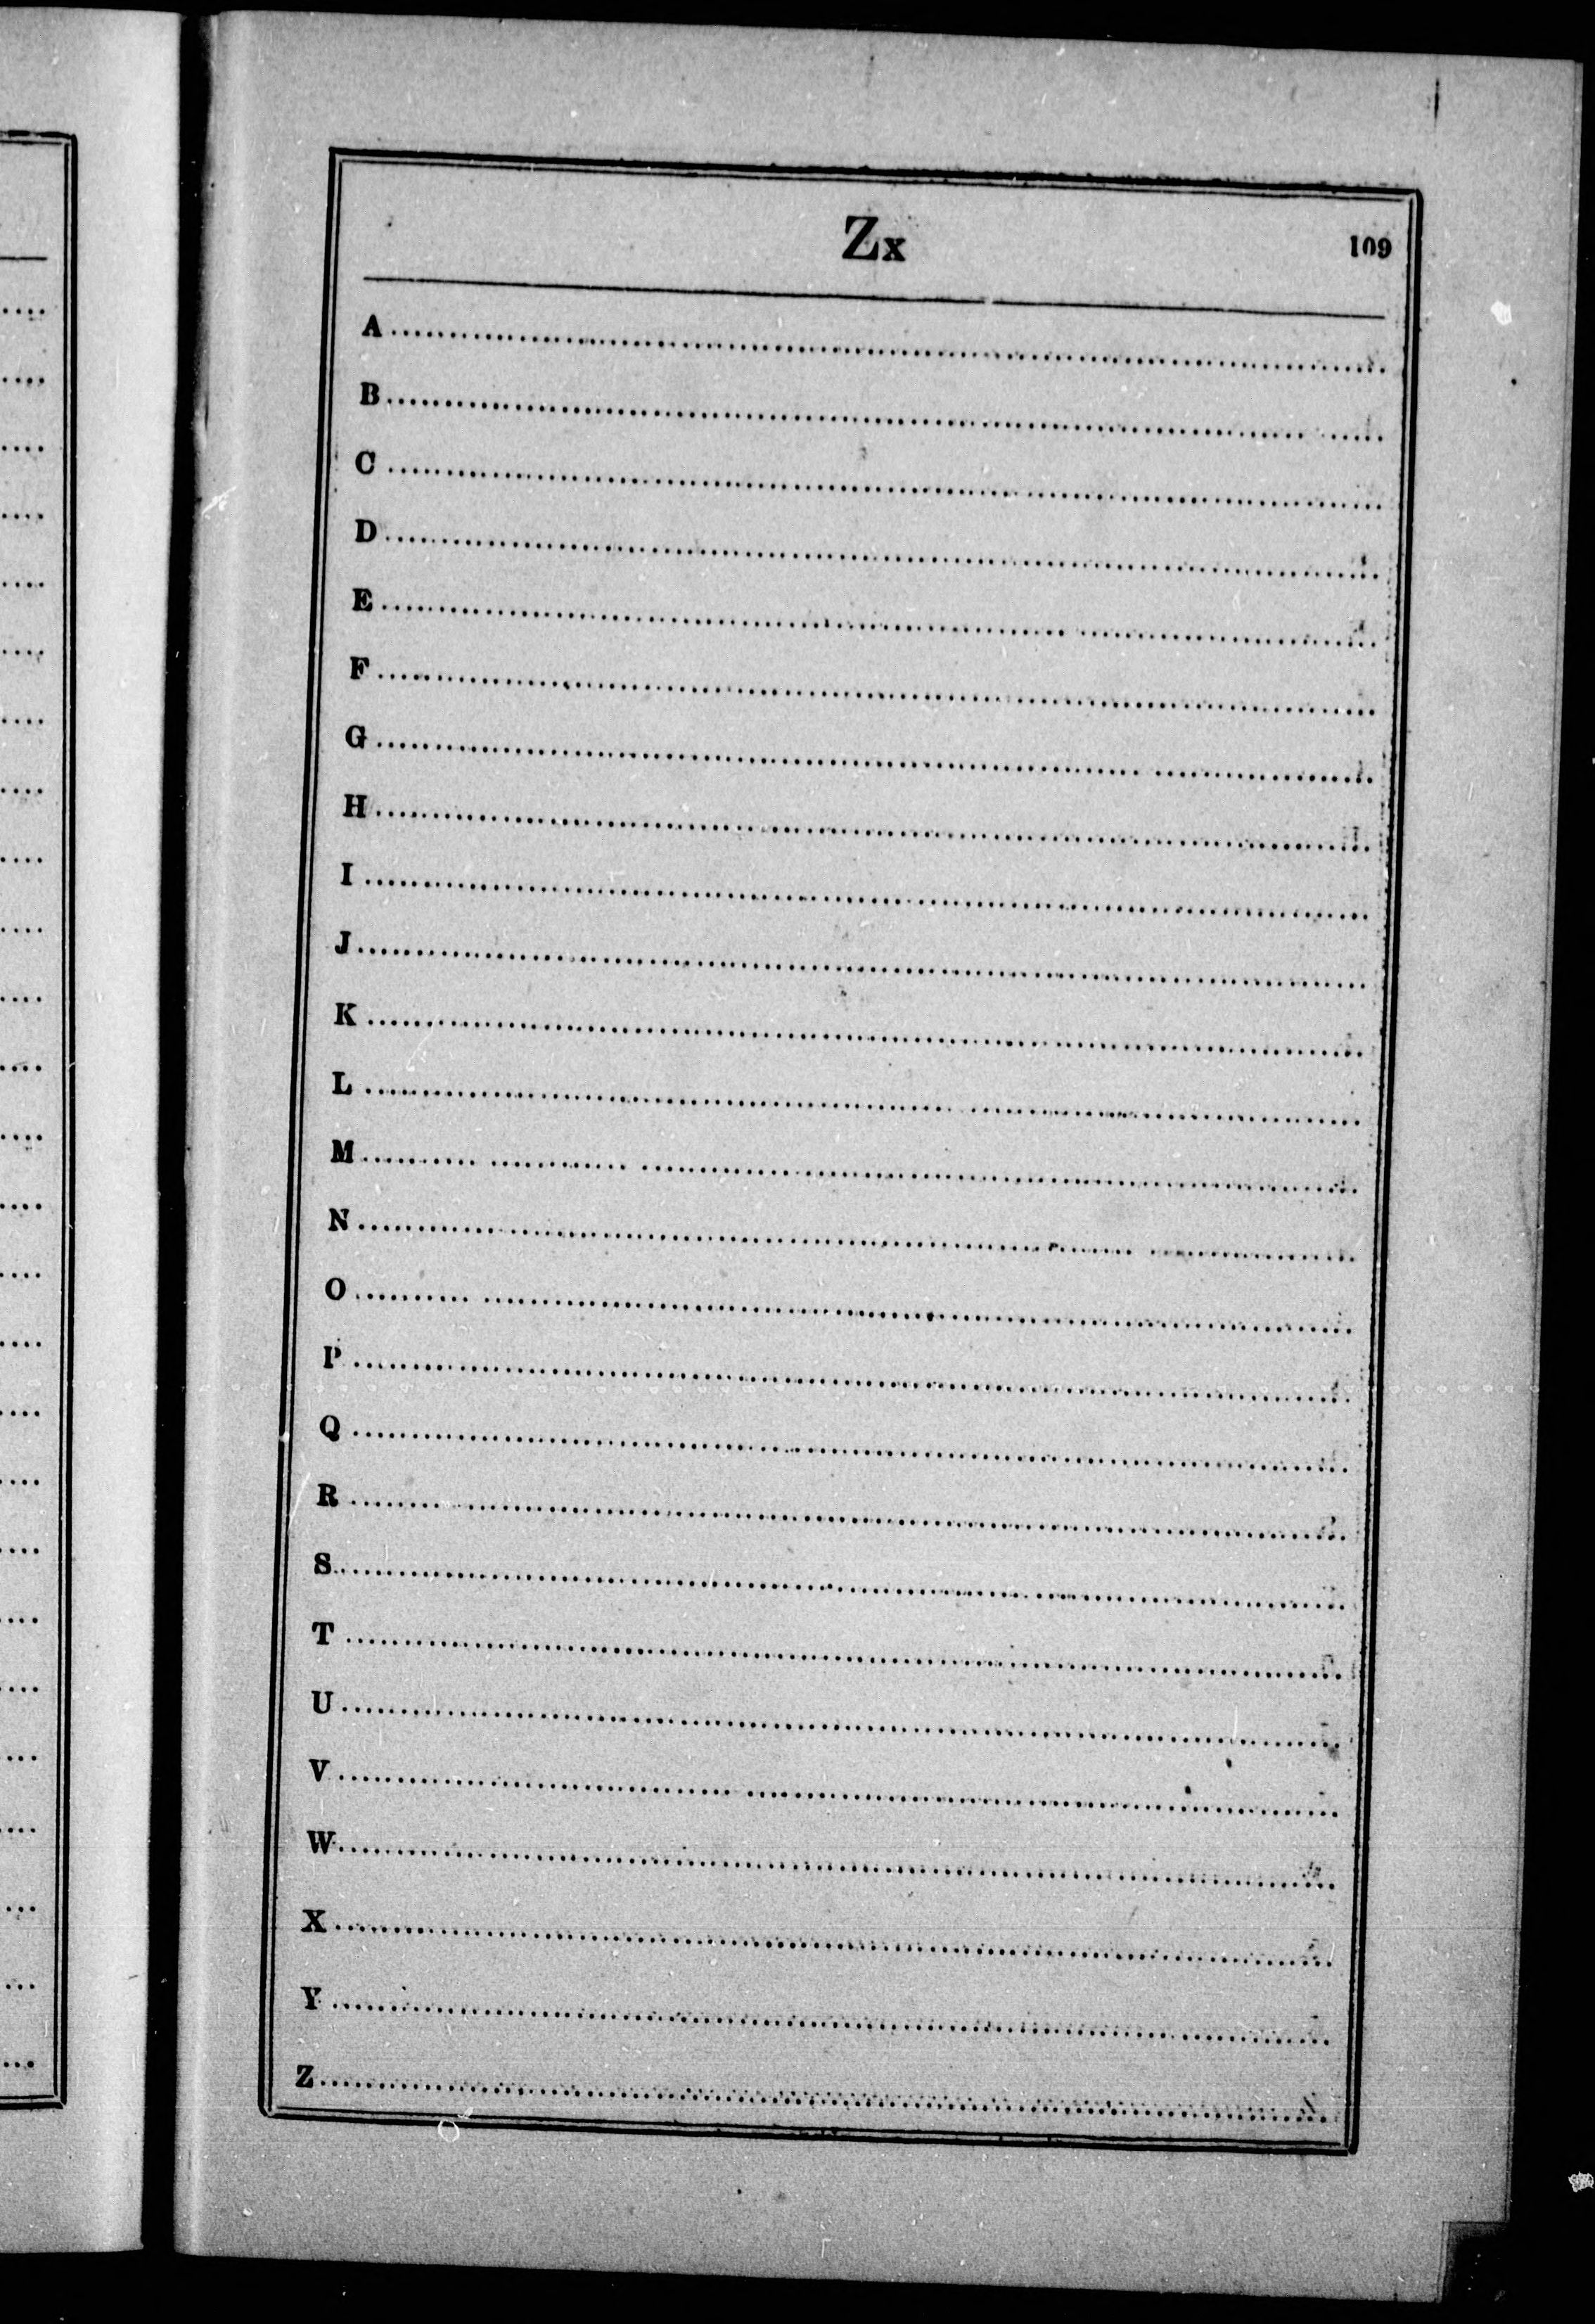 Zx 109
A
B
C
D
E
F
G
H
I
J
K
L
M
N
O
P
Q
R
S
T
U
V
W
X
Y
Z